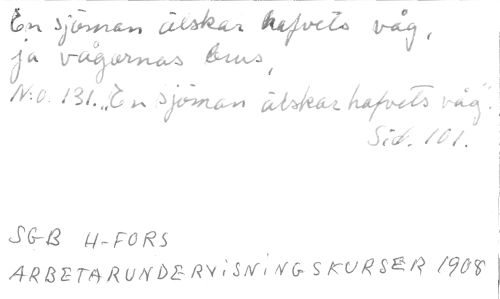 En sjöman älskar hafvets våg,
ja vågornas brus,
N:o. 131. "En sjöman älskar hafvets våg".
Sid. 101.
SGB H-FORS
ARBETARUNDERVISNINGSKURSER 1908